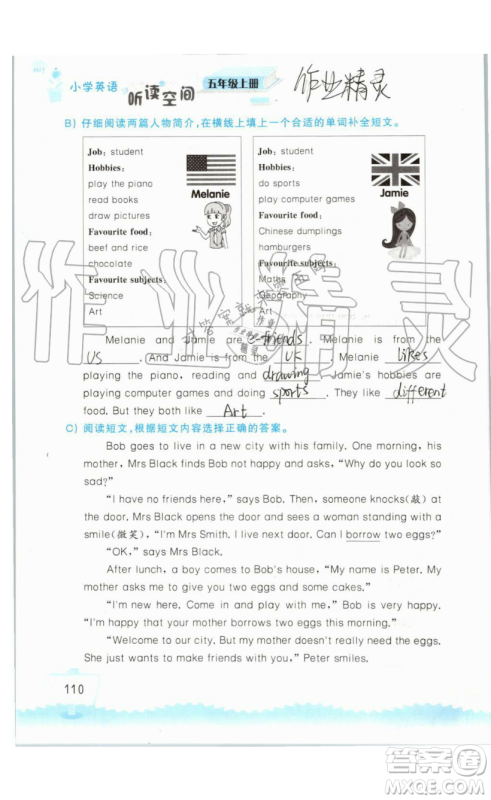 小学英语
听读空间
五年级上册
作业精灵
B) 仔细阅读两篇人物简介,在横线上填上一个合适的单词补全短文。
Job: student
Hobbies:
play the piano
read books
draw pictures
Favourite food:
beef and rice
chocolate
Favourite subjects:
Science
Art
Melanie
Job: student
Hobbies:
do sports
play computer games
Favourite food:
Chinese dumplings
hamburgers
Favourite subjects:
Maths
Geography
Art
Jamie
Melanie and Jamie are e-friends. Melanie is from the
US. And Jamie is from the UK. Melanie likes
playing the piano, reading and drawing. Jamie's hobbies are
playing computer games and doing sports. They like different
food. But they both like Art.
C) 阅读短文,根据短文内容选择正确的答案。
Bob goes to live in a new city with his family. One morning, his
mother, Mrs Black finds Bob not happy and asks, “Why do you look so
sad?”
“I have no friends here,” says Bob. Then, someone knocks(敲)at
the door. Mrs Black opens the door and sees a woman standing with a
smile(微笑), “I'm Mrs Smith. I live next door. Can I borrow two eggs?”
“OK,” says Mrs Black.
After lunch, a boy comes to Bob's house, “My name is Peter. My
mother asks me to give you two eggs and some cakes.”
“I'm new here. Come in and play with me,” Bob is very happy.
“I'm happy that your mother borrows two eggs from my mother.”
“Welcome to our city. But my mother doesn't really need the eggs.
She just wants to make friends with you,” Peter smiles.
110
作业精灵
答案圈
MXQE.COM